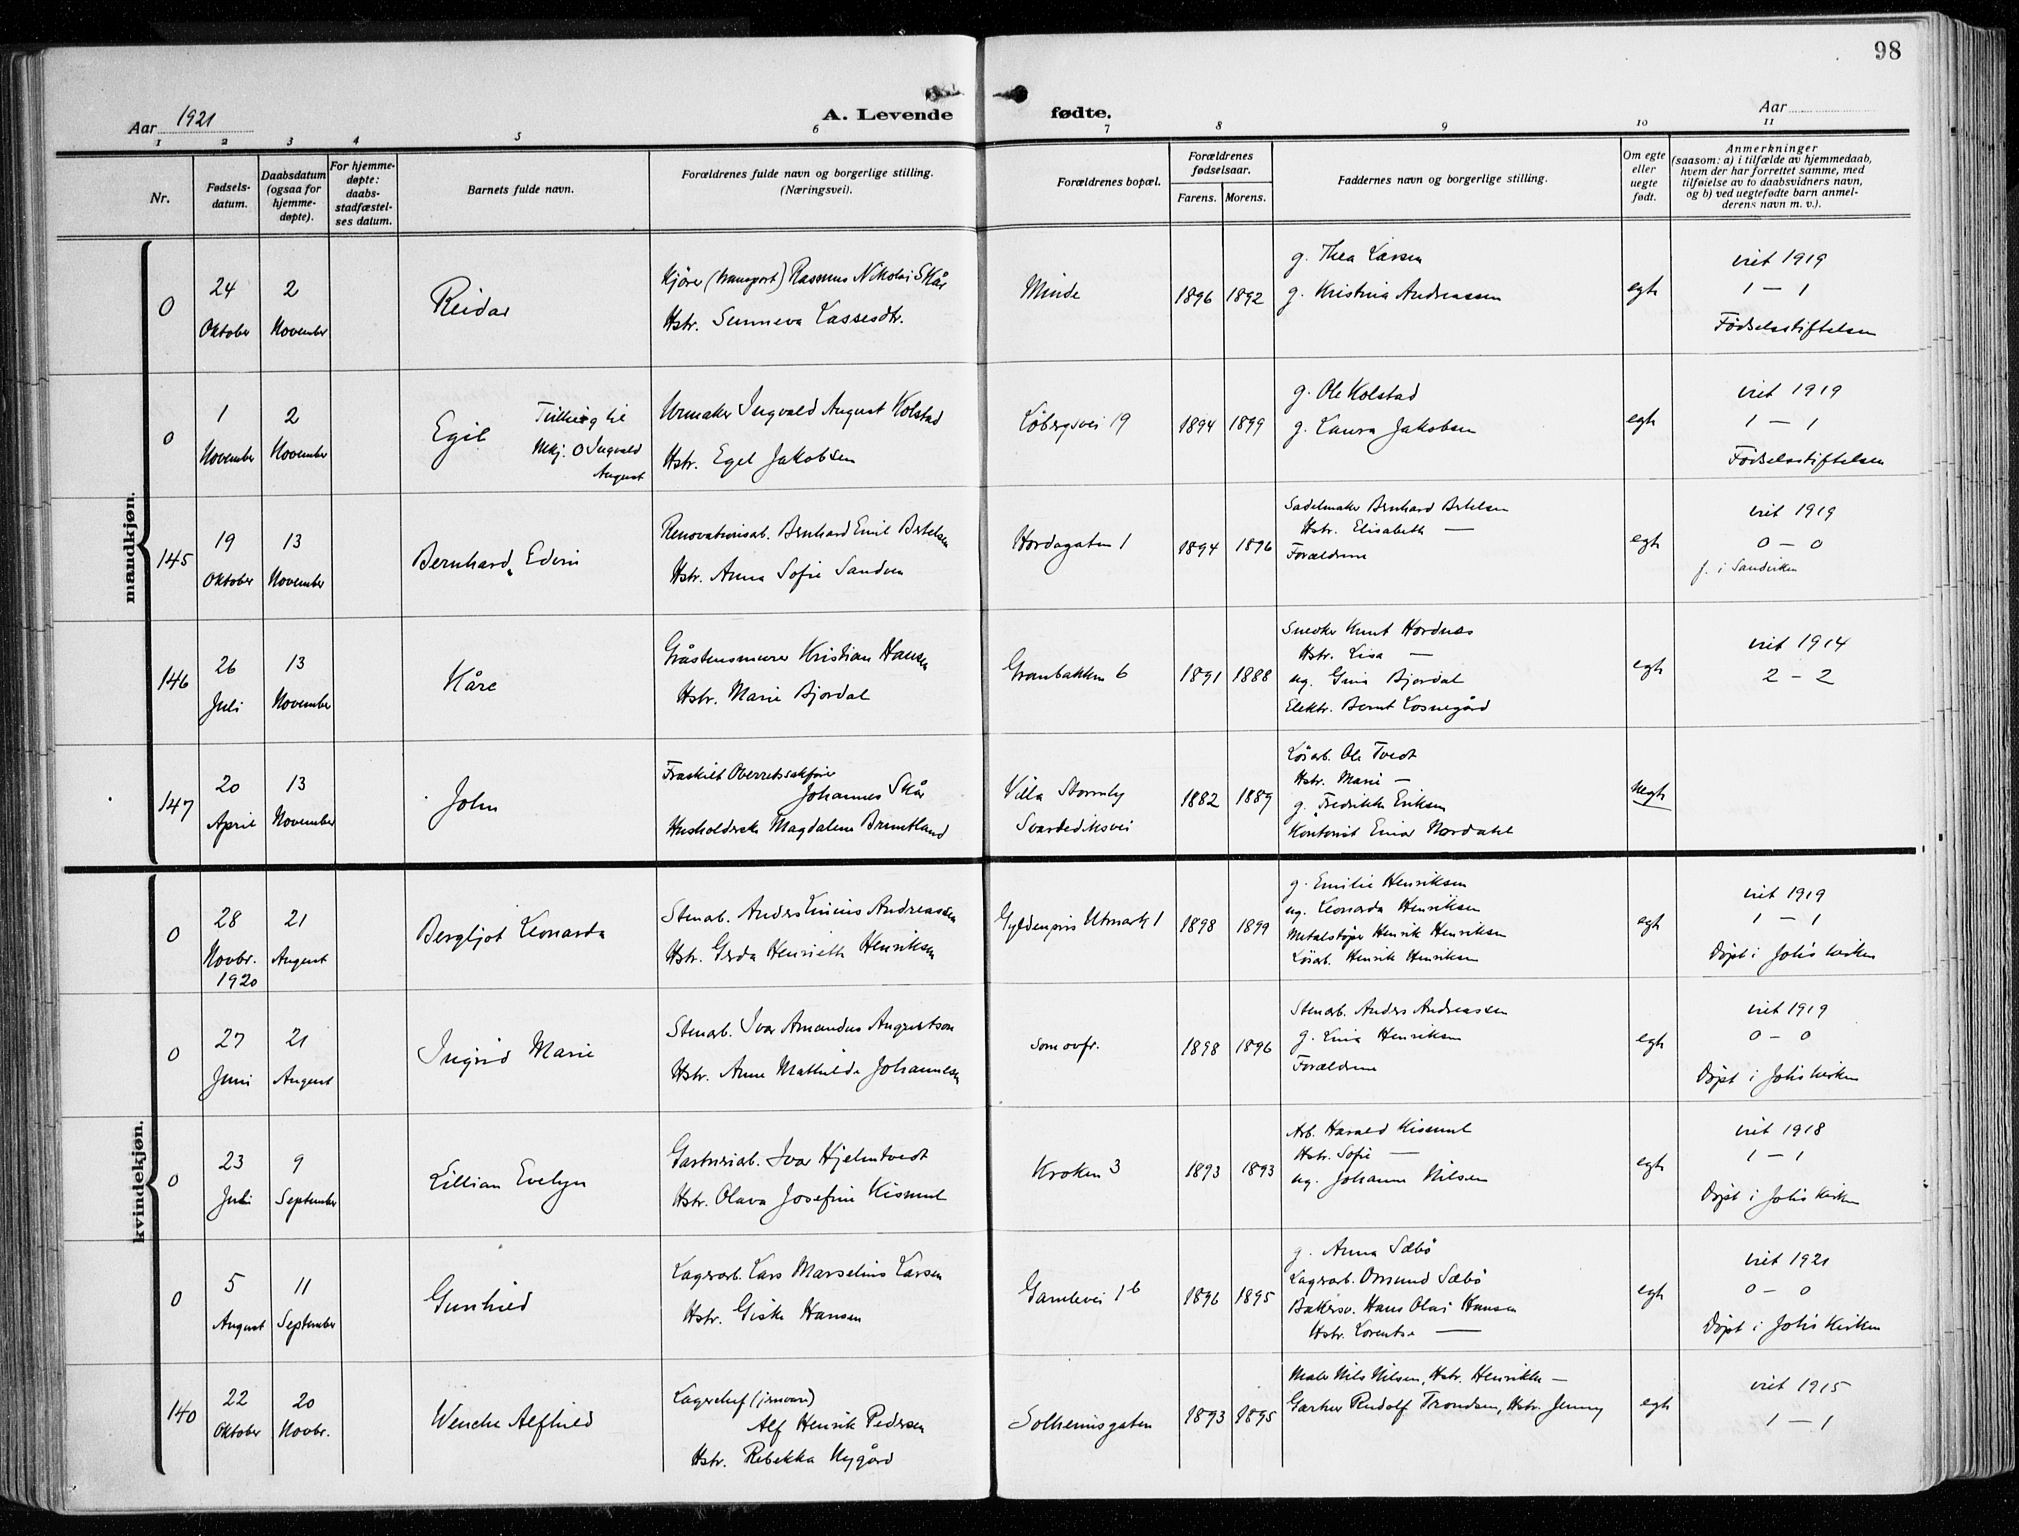 98
Aar 1921
A. Levende fødte.
Aar
1 2 3 4 5 6 7 8 9 10 11
Nr.
Fødsels-
datum.
Daabsdatum
(ogsaa for
hjemme-
døpte).
For hjemme-
døpte:
daabs-
stadfæstel-
ses datum.
Barnets fulde navn.
Forældrenes fulde navn og borgerlige stilling.
(Næringsvei).
Forældrenes bopæl.
Forældrenes
fødselsaar.
Farens. Morens.
Faddernes navn og borgerlige stilling.
Om egte
eller
uegte
født.
Anmerkninger
(saasom: a) i tilfælde av hjemmedaab,
hvem der har forrettet samme, med
tilføielse av to daabsvidners navn,
og b) ved uegtefødte barn anmel-
derens navn m. v.).
mandkjøn.
0
24
Oktober
2
November
Reidar
Kjører (transport) Rasmus Nikolai Skår
Hstr. Sunneva Lassesdtr.
Minde
1896 1892
g. Thea Larsen
g. Kristina Andreassen
egte
viet 1919
1 – 1
Fødselsstiftelsen
0
1
November
2
November
Egil
Tillæg til
Mkj. 0 Ingvald
August
Urmaker Ingvald August Kolstad
Hstr. Egel Jakobsen
Løbergsvei 19
1894 1899
g. Ole Kolstad
g. Laura Jakobsen
egte
viet 1919
1 – 1
Fødselsstiftelsen
145
19
Oktober
13
November
Bernhard Edvin
Renovationsarb. Bernhard Emil Bertelsen
Hstr. Anna Sofie Sandven
Hordagaten 1
1894 1896
Sadelmaker Bernhard Bertelsen
Hstr. Elisabeth —
Forældrene
egte
viet 1919
0 – 0
f. i Sandviken
146
26
Juli
13
November
Kåre
Gråstensmurer Kristian Hansen
Hstr. Marie Bjordal
Granbakken 6
1891 1888
Snedker Knut Hordnes
Hstr. Lisa —
ug. Gina Bjordal
Elektr. Bernt Losnegård
egte
viet 1914
2 – 2
147
20
April
13
November
John
Fraskilt Overretssakfører
Johannes Skår
Husholderske Magdalene Bruntland
Villa Stormly
Svartediksvei
1882 1889
Løsarb. Ole Tvedt
Hstr. Marie —
g. Fredrikke Eriksen
Kontorist Einar Nordahl
uegte
kvindekjøn.
0
28
Novbr.
1920
21
August
Bergljot Leonarda
Stenarb. Anders Linius Andreassen
Hstr. Gerda Henriette Henriksen
Gyldenpris Utmark 1
1898 1899
g. Emilie Henriksen
ug. Leonarda Henriksen
Metalstøper Henrik Henriksen
Løsarb. Henrik Henriksen
egte
viet 1919
1 – 1
Døpt i Johs kirken
0
27
Juni
21
August
Ingrid Marie
Stenarb. Ivar Amandus Augustson
Hstr. Anne Mathilde Johannesen
som ovfr.
1898 1896
Stenarb. Anders Andreassen
g. Lina Henriksen
Forældrene
egte
viet 1919
0 – 0
Døpt i Johs kirken
0
23
Juli
9
September
Lillian Evelyn
Garveriarb. Ivar Hjelmtvedt
Hstr. Olava Josefine Kismul
Kroken 3
1893 1893
Arb. Harald Kismul
Hstr. Sofie —
ug. Johanne Nilsen
egte
viet 1918
1 – 1
Døpt i Johs kirken
0
5
August
11
September
Gunhild
Lagerarb. Lars Marselius Larsen
Hstr. Giske Hansen
Gamlevei 1b
1896 1895
g. Anna Sæbø
Lagerarb. Omund Sæbø
Bakersv. Hans Olai Hansen
Hstr. Lorentse —
egte
viet 1921
0 – 0
Døpt i Johs kirken
140
22
Oktober
20
Novbr.
Wenche Alfhild
Lagerchef (jernvare)
Alf Henrik Pedersen
Hstr. Rebekka Nygård
Solheimsgaten
1893 1895
Maler Nils Nilsen, Hstr. Henrikke —
Gartner Rudolf Trondsen, Hstr. Jenny
egte
viet 1915
1 – 1